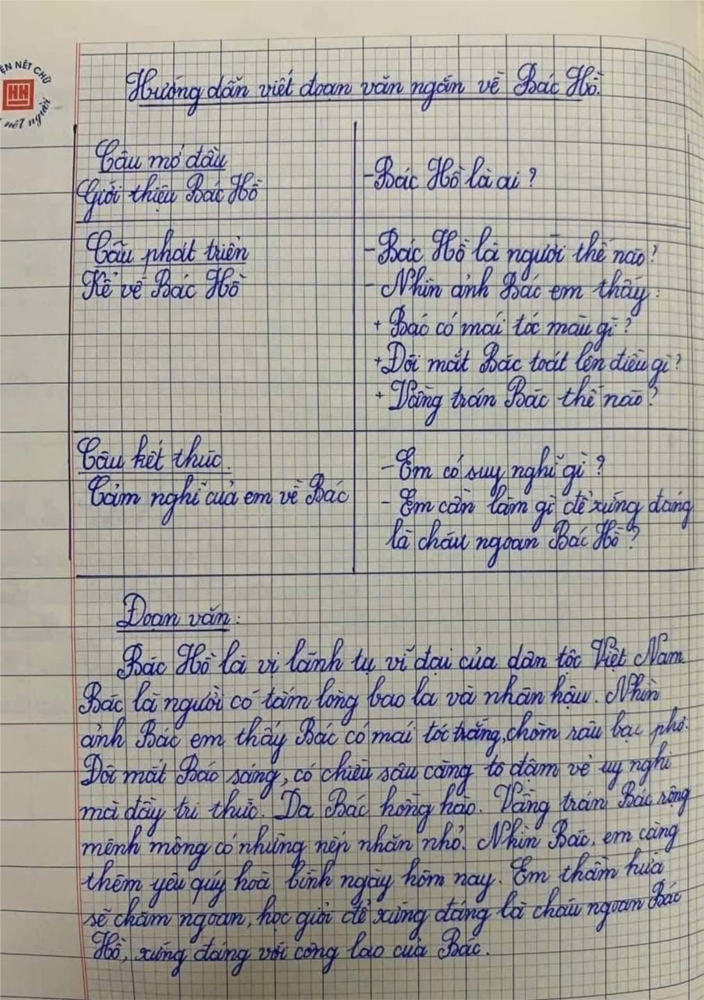 ÈN NÉT CHỮ
nết người
Hướng dẫn viết đoạn văn ngắn về Bác Hồ.
Câu mở đầu
Giới thiệu Bác Hồ
- Bác Hồ là ai ?
Câu phát triển
Kể về Bác Hồ
- Bác Hồ là người thế nào ?
- Nhìn ảnh Bác em thấy :
+ Bác có mái tóc màu gì ?
+ Đôi mắt Bác toát lên điều gì ?
+ Vầng trán Bác thế nào ?
Câu kết thúc.
Cảm nghĩ của em về Bác
- Em có suy nghĩ gì ?
- Em cần làm gì để xứng đáng
là cháu ngoan Bác Hồ ?
Đoạn văn :
Bác Hồ là vị lãnh tụ vĩ đại của dân tộc Việt Nam.
Bác là người có tấm lòng bao la và nhân hậu. Nhìn
ảnh Bác em thấy Bác có mái tóc trắng, chòm râu bạc phơ.
Đôi mắt Bác sáng, có chiều sâu càng tô đậm vẻ uy nghi
mà đầy tri thức. Da Bác hồng hào. Vầng trán Bác rộng
mênh mông có những nếp nhăn nhỏ. Nhìn Bác, em càng
thêm yêu quý hoà bình ngày hôm nay. Em thầm hứa
sẽ chăm ngoan, học giỏi để xứng đáng là cháu ngoan Bác
Hồ, xứng đáng với công lao của Bác.